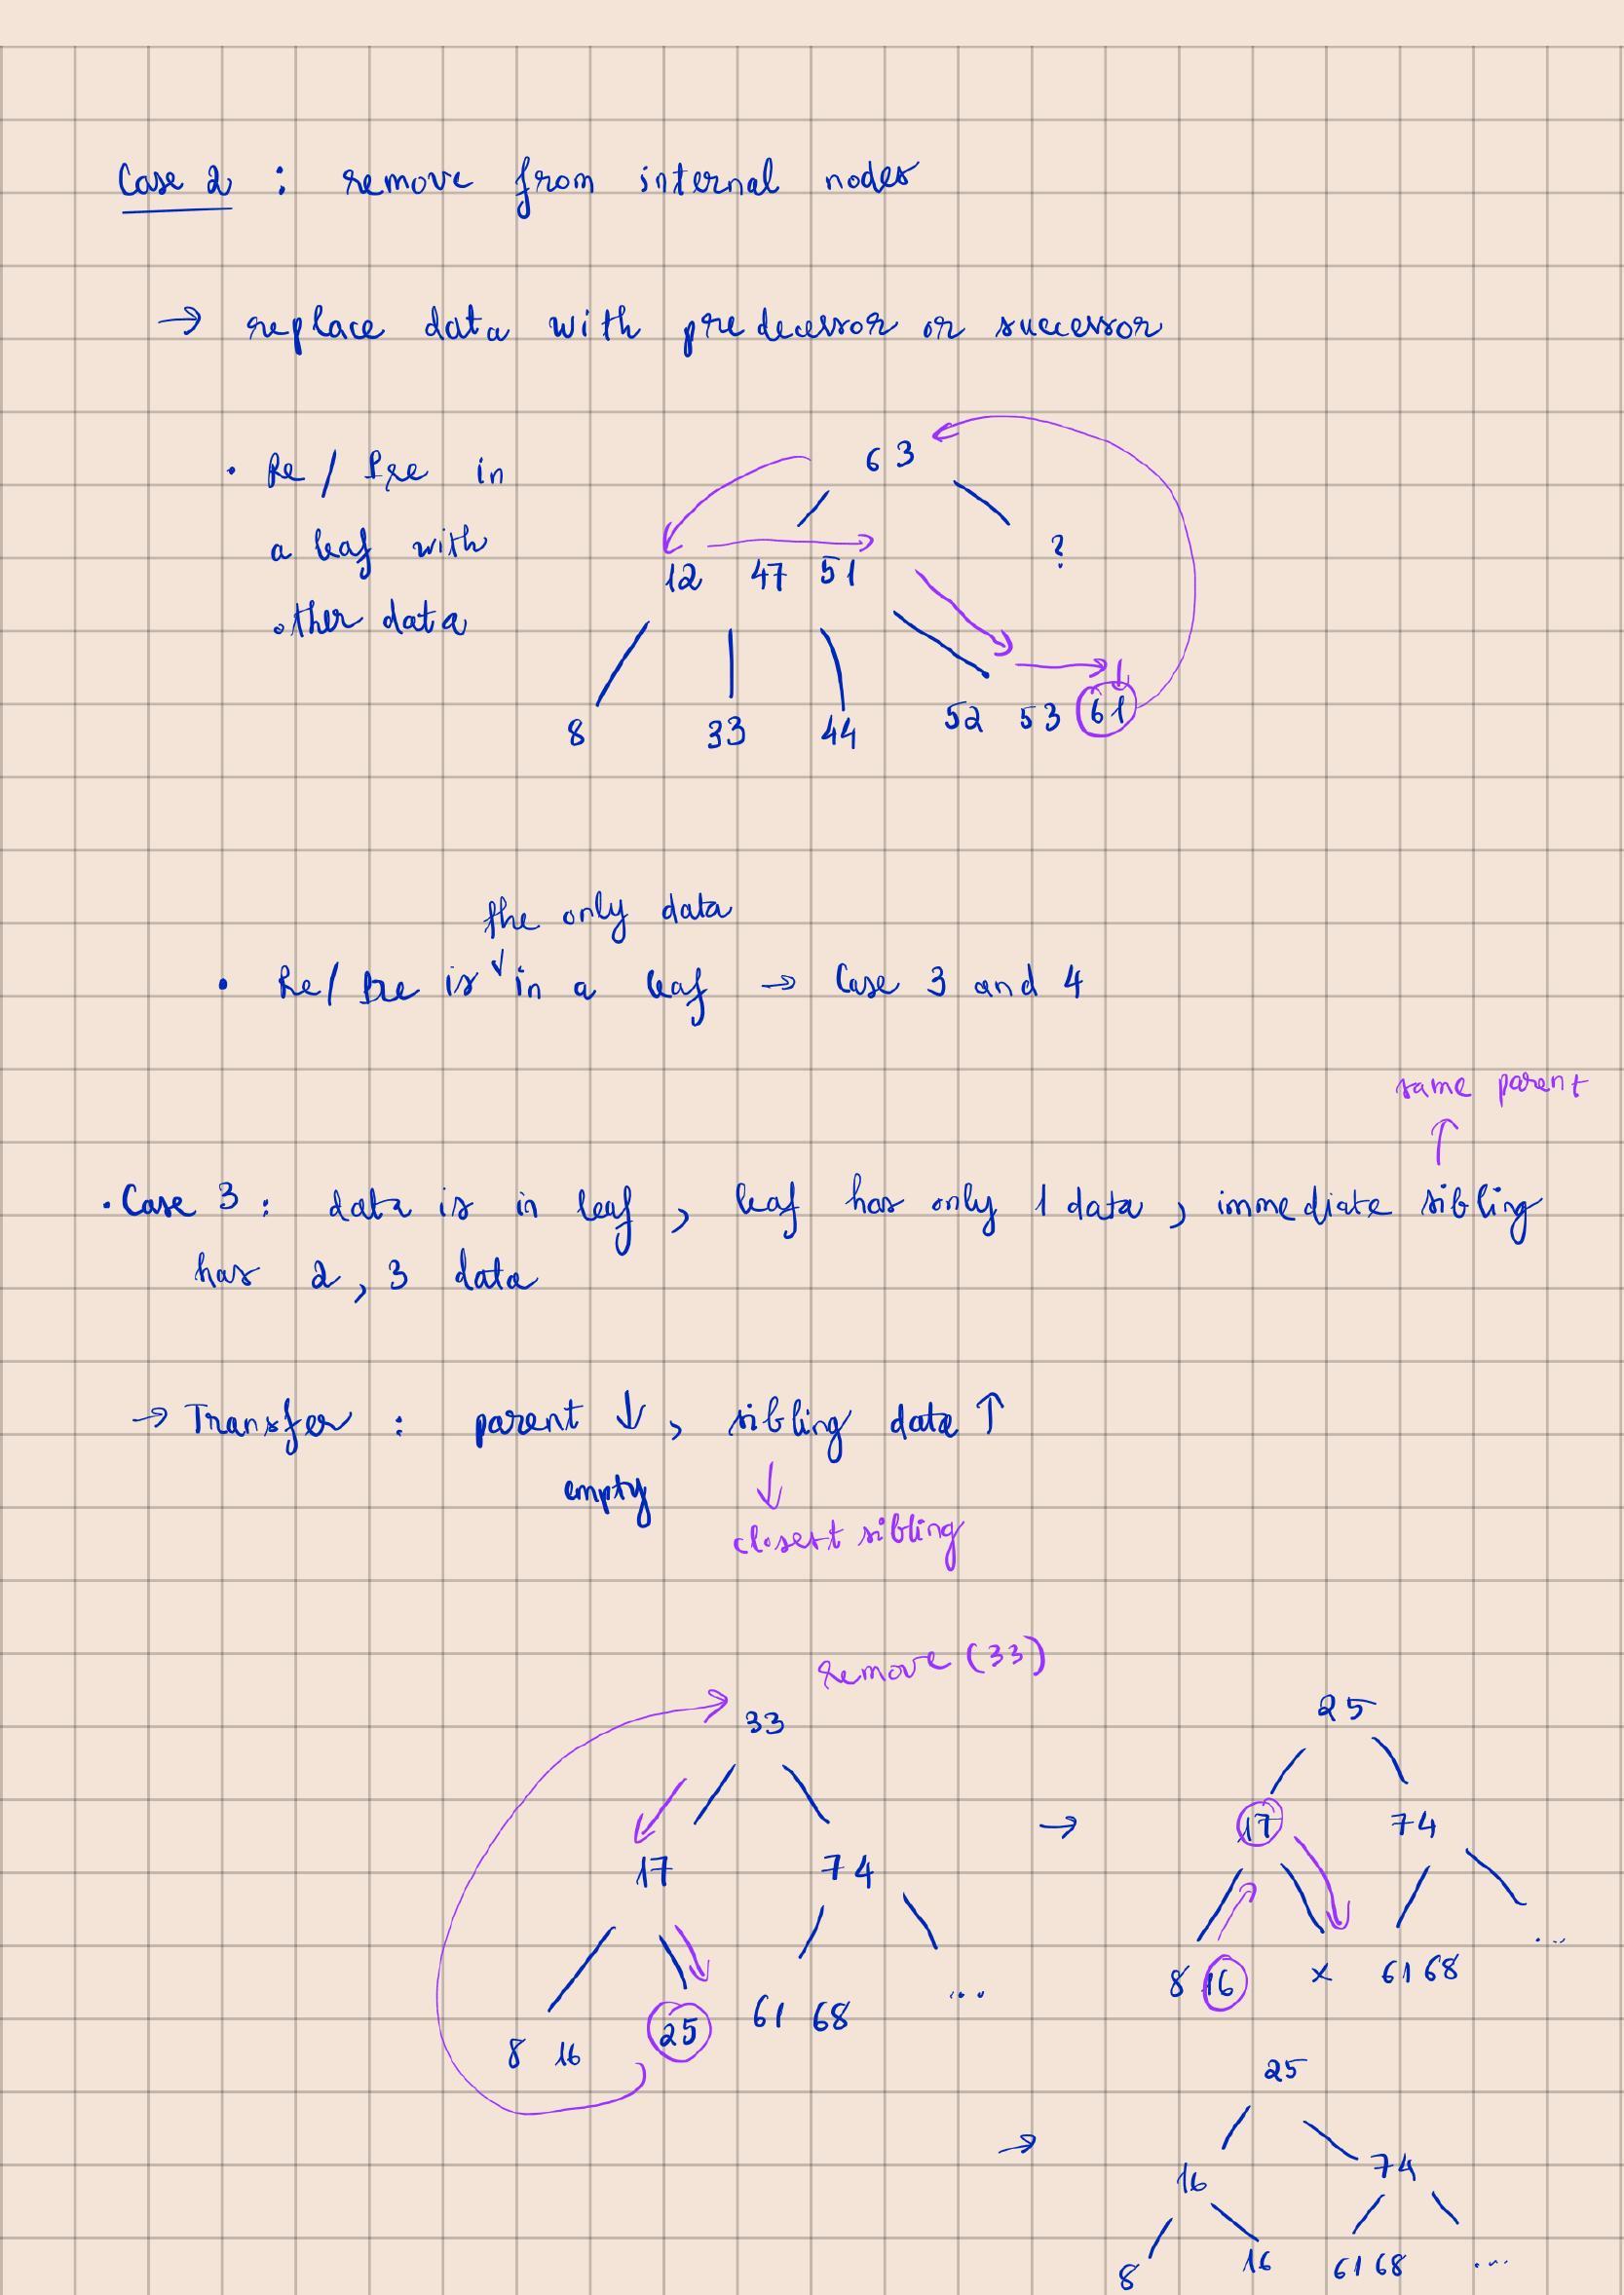 Case 2 : remove from internal nodes
→ replace data with predecessor or successor
• Re / Pre in
a leaf with
other data
63
12 47 51 ?
8 33 44 52 53 61
the only data
• Re / Pre is in a leaf → Case 3 and 4
same parent
• Case 3 : data is in leaf , leaf has only 1 data , immediate sibling
has 2 , 3 data
→ Transfer : parent ↓ , sibling data ↑
empty
closest sibling
remove (33)
33
17 74
8 16 25 61 68 ...
→
25
17 74
8 16 x 61 68 ...
→
25
16 74
8 16 61 68 ...